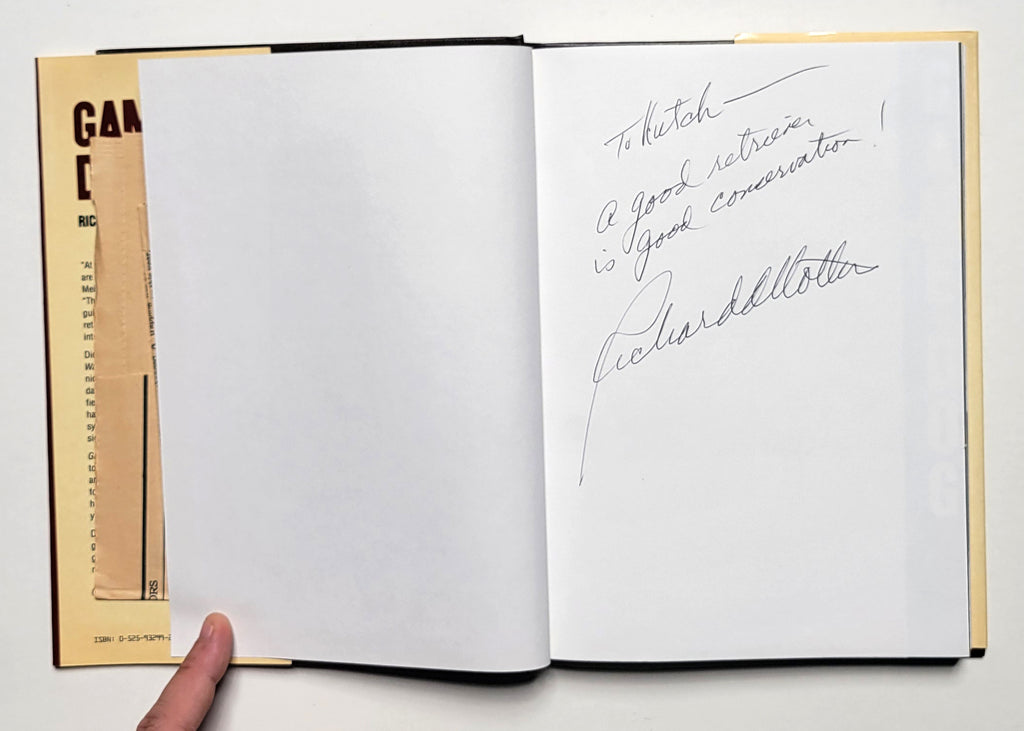 GAM
D
RIC
"At
are
Mei
"Th
gui
ret
int
Di
Wa
nic
da
fie
ha
sy
si
G
to
an
fo
h
y
D
g
g
ISBN: 0-525-93299-
ORS
To Hutch —
a good retriever
is good conservation!
Richard A Wolters